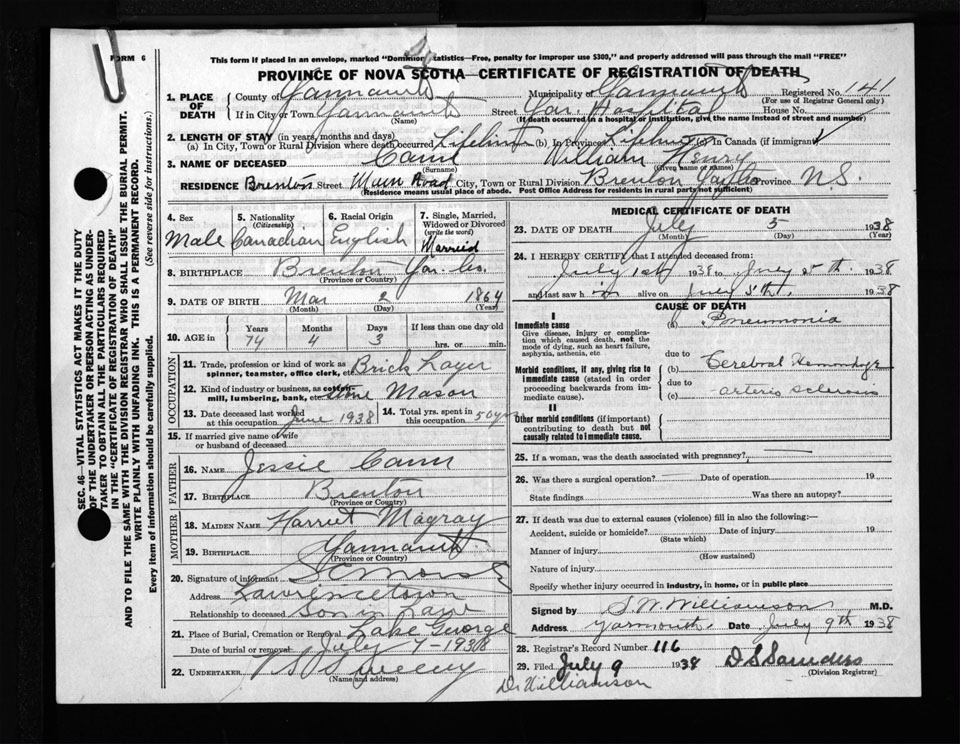 FORM 6
This form if placed in an envelope, marked "Dominion Statistics—Free, penalty for improper use $300," and properly addressed will pass through the mail "FREE"
PROVINCE OF NOVA SCOTIA—CERTIFICATE OF REGISTRATION OF DEATH
1. PLACE OF DEATH County of Yarmouth Municipality of Yarmouth Registered No. 141
(For use of Registrar General only)
If in City or Town Yarmouth (Name) Street Yar. Hospital House No.
(If death occurred in a hospital or institution, give the name instead of street and number)
2. LENGTH OF STAY (in years, months and days)
(a) In City, Town or Rural Division where death occurred Lifetime (b) In Province Lifetime (c) In Canada (if immigrant)
3. NAME OF DECEASED Cann William Henry
(Surname) (Given name or names)
RESIDENCE Brenton Street Main Road City, Town or Rural Division Brenton Province N.S.
(Residence means usual place of abode. Post Office Address for residents in rural parts not sufficient)
4. Sex Male
5. Nationality (Citizenship) Canadian
6. Racial Origin English
7. Single, Married, Widowed or Divorced (write the word) Married
8. BIRTHPLACE Brenton Yar. Co.
(Province or Country)
9. DATE OF BIRTH Mar 2 1864
(Month) (Day) (Year)
10. AGE in Years 74 Months 4 Days 3 If less than one day old hrs. or min.
OCCUPATION
11. Trade, profession or kind of work as spinner, teamster, office clerk, etc. Brick Layer
12. Kind of industry or business, as cotton mill, lumbering, bank, etc. Stone Mason
13. Date deceased last worked at this occupation June 1938
14. Total yrs. spent in this occupation 50 yrs
15. If married give name of wife or husband of deceased
FATHER
16. NAME Jessie Cann
17. BIRTHPLACE Brenton
(Province or Country)
MOTHER
18. MAIDEN NAME Harriet Magray
19. BIRTHPLACE Yarmouth
(Province or Country)
20. Signature of informant
Address Lawrencetown
Relationship to deceased Son in Law
21. Place of Burial, Cremation or Removal Lake George
Date of burial or removal July 7-1938
22. UNDERTAKER Sweeny
(Name and address)
MEDICAL CERTIFICATE OF DEATH
23. DATE OF DEATH July 5 1938
(Month) (Day) (Year)
24. I HEREBY CERTIFY that I attended deceased from:
July 1st 1938 to July 5th 1938
and last saw him alive on July 5th, 1938
CAUSE OF DEATH
I
Immediate cause (a) Pneumonia
Give disease, injury or complication which caused death, not the mode of dying, such as heart failure, asphyxia, asthenia, etc
due to
Morbid conditions, if any, giving rise to immediate cause (stated in order proceeding backwards from immediate cause). (b) Cerebral Hemorrhage
due to
(c) arterio sclerosis
II
Other morbid conditions (if important) contributing to death but not causally related to immediate cause.
25. If a woman, was the death associated with pregnancy?
26. Was there a surgical operation? Date of operation 19
State findings Was there an autopsy?
27. If death was due to external causes (violence) fill in also the following:—
Accident, suicide or homicide? Date 19
(State which)
Manner of injury
(How sustained)
Nature of injury
Specify whether injury occurred in industry, in home, or in public place
Signed by S.W. Williamson M.D.
Address Yarmouth Date July 9th 1938
28. Registrar's Record Number 116
29. Filed July 9 1938 D S Saunders
(Division Registrar)
Dr Williamson
SEC. 46—VITAL STATISTICS ACT MAKES IT THE DUTY
OF THE UNDERTAKER OR PERSON ACTING AS UNDER-
TAKER TO OBTAIN ALL THE PARTICULARS REQUIRED
IN THE "CERTIFICATE OF REGISTRATION OF DEATH"
AND TO FILE THE SAME WITH THE DIVISION REGISTRAR WHO SHALL ISSUE THE BURIAL PERMIT.
WRITE PLAINLY WITH UNFADING INK. THIS IS A PERMANENT RECORD.
Every item of information should be carefully supplied. (See reverse side for instructions.)